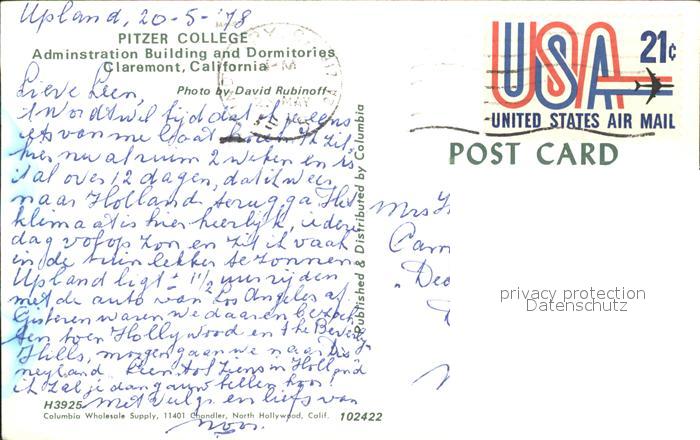 Upland, 20-5-'78
PITZER COLLEGE
Adminstration Building and Dormitories
Claremont, California
Photo by David Rubinoff
Lieve Leen,
't Wordt wel tijd dat je eens
iets van me laat horen. Ik zit
hier nu al ruim 2 weken en is
't al over 12 dagen, dat ik weer
naar Holland terug ga. Het
klimaat is hier heerlijk, iedere
dag volop zon en zit ik vaak
in de tuin lekker te zonnen.
Upland ligt ± 1 1/2 uur rijden
met de auto van Los Angeles af.
Gisteren waren we daar en bezoch
ten toen Hollywood en the Beverly
Hills, morgen gaan we naar Dis
neyland. Leen tot ziens in Holland
ik zal je dan gauw bellen hoor!
Met veel gr. en liefs van
Noor.
H3925
Columbia Wholesale Supply, 11401 Chandler, North Hollywood, Calif. 102422
Published & Distributed by Columbia
MAY
USA 21¢
UNITED STATES AIR MAIL
POST CARD
Mrs
privacy protection
Datenschutz